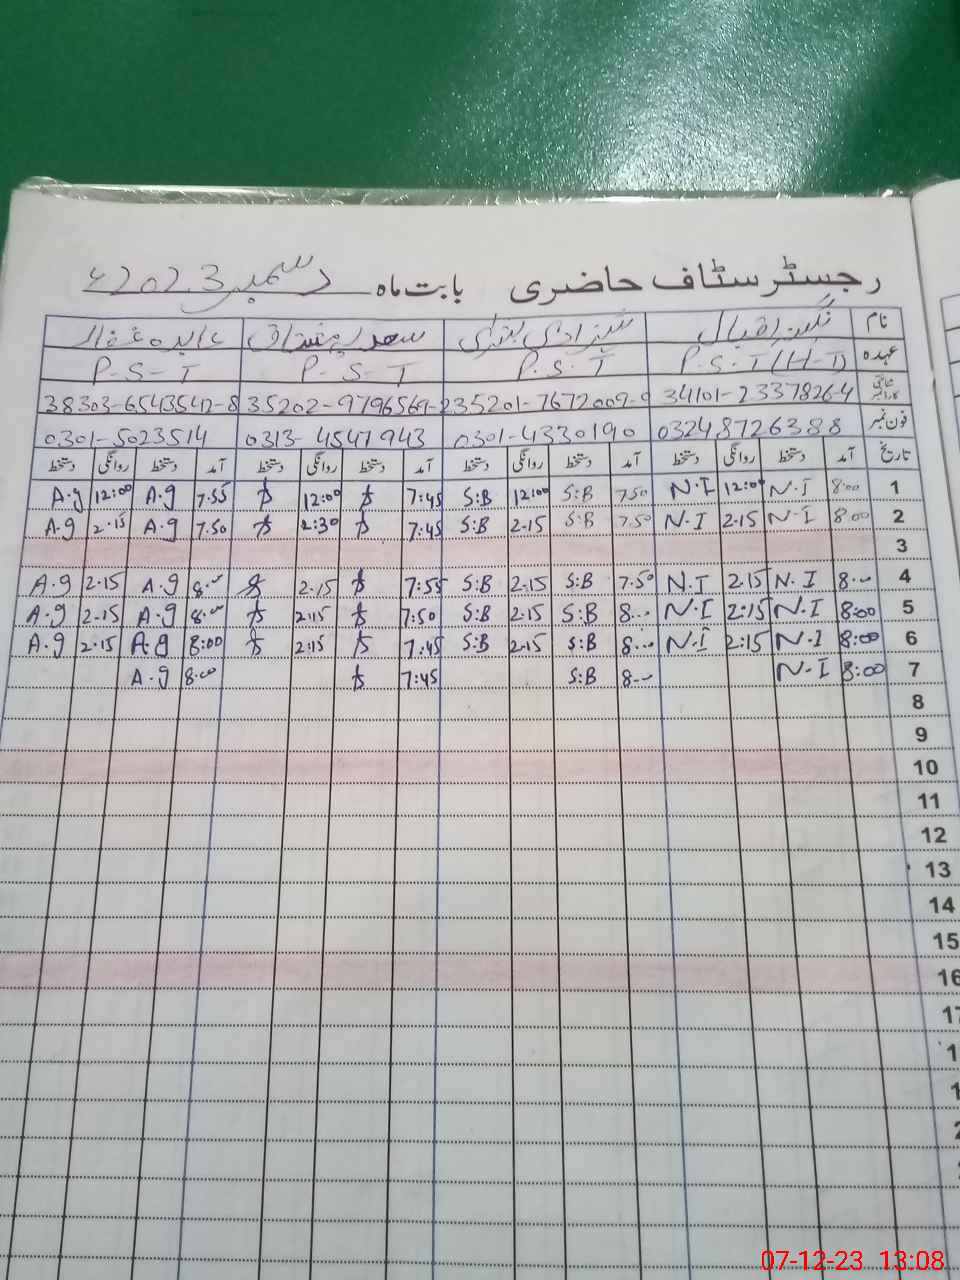 رجسٹر سٹاف حاضری بابت ماہ دسمبر 2023ء
نام نگینہ اقبال شہزادی بشریٰ سعدیہ مشتاق عابدہ غفار
عہدہ P.S.T (H-T) P.S.T P-S-T P-S-T
34101-2337826-4 35201-7672009-0 35202-9796569-2 38303-6543542-8
فون نمبر 03248726388 0301-4330190 0313-4547943 0301-5023514
تاریخ آمد دستخط روانگی دستخط آمد دستخط روانگی دستخط آمد دستخط روانگی دستخط آمد دستخط روانگی دستخط
1 8:00 N.I 12:00 N.I 7.50 S:B 12:00 S:B 7:45 12:00 7.55 A.g 12:00 A.g
2 8:00 N.I 2.15 N.I 7.50 S:B 2.15 S:B 7:45 2:30 7.50 A.g 2.15 A.g
3
4 8.00 N.I 2.15 N.I 7.50 S:B 2.15 S:B 7:55 2.15 8.00 A.g 2.15 A.g
5 8:00 N.I 2:15 N.I 8.00 S:B 2.15 S:B 7:50 2:15 8.00 A.g 2.15 A.g
6 8:00 N.I 2:15 N.I 8.00 S:B 2.15 S:B 7:45 2:15 8:00 A.g 2.15 A.g
7 8:00 N.I 8.00 S:B 7:45 8:00 A.g
8
9
10
11
12
13
14
15
16
07-12-23 13:08